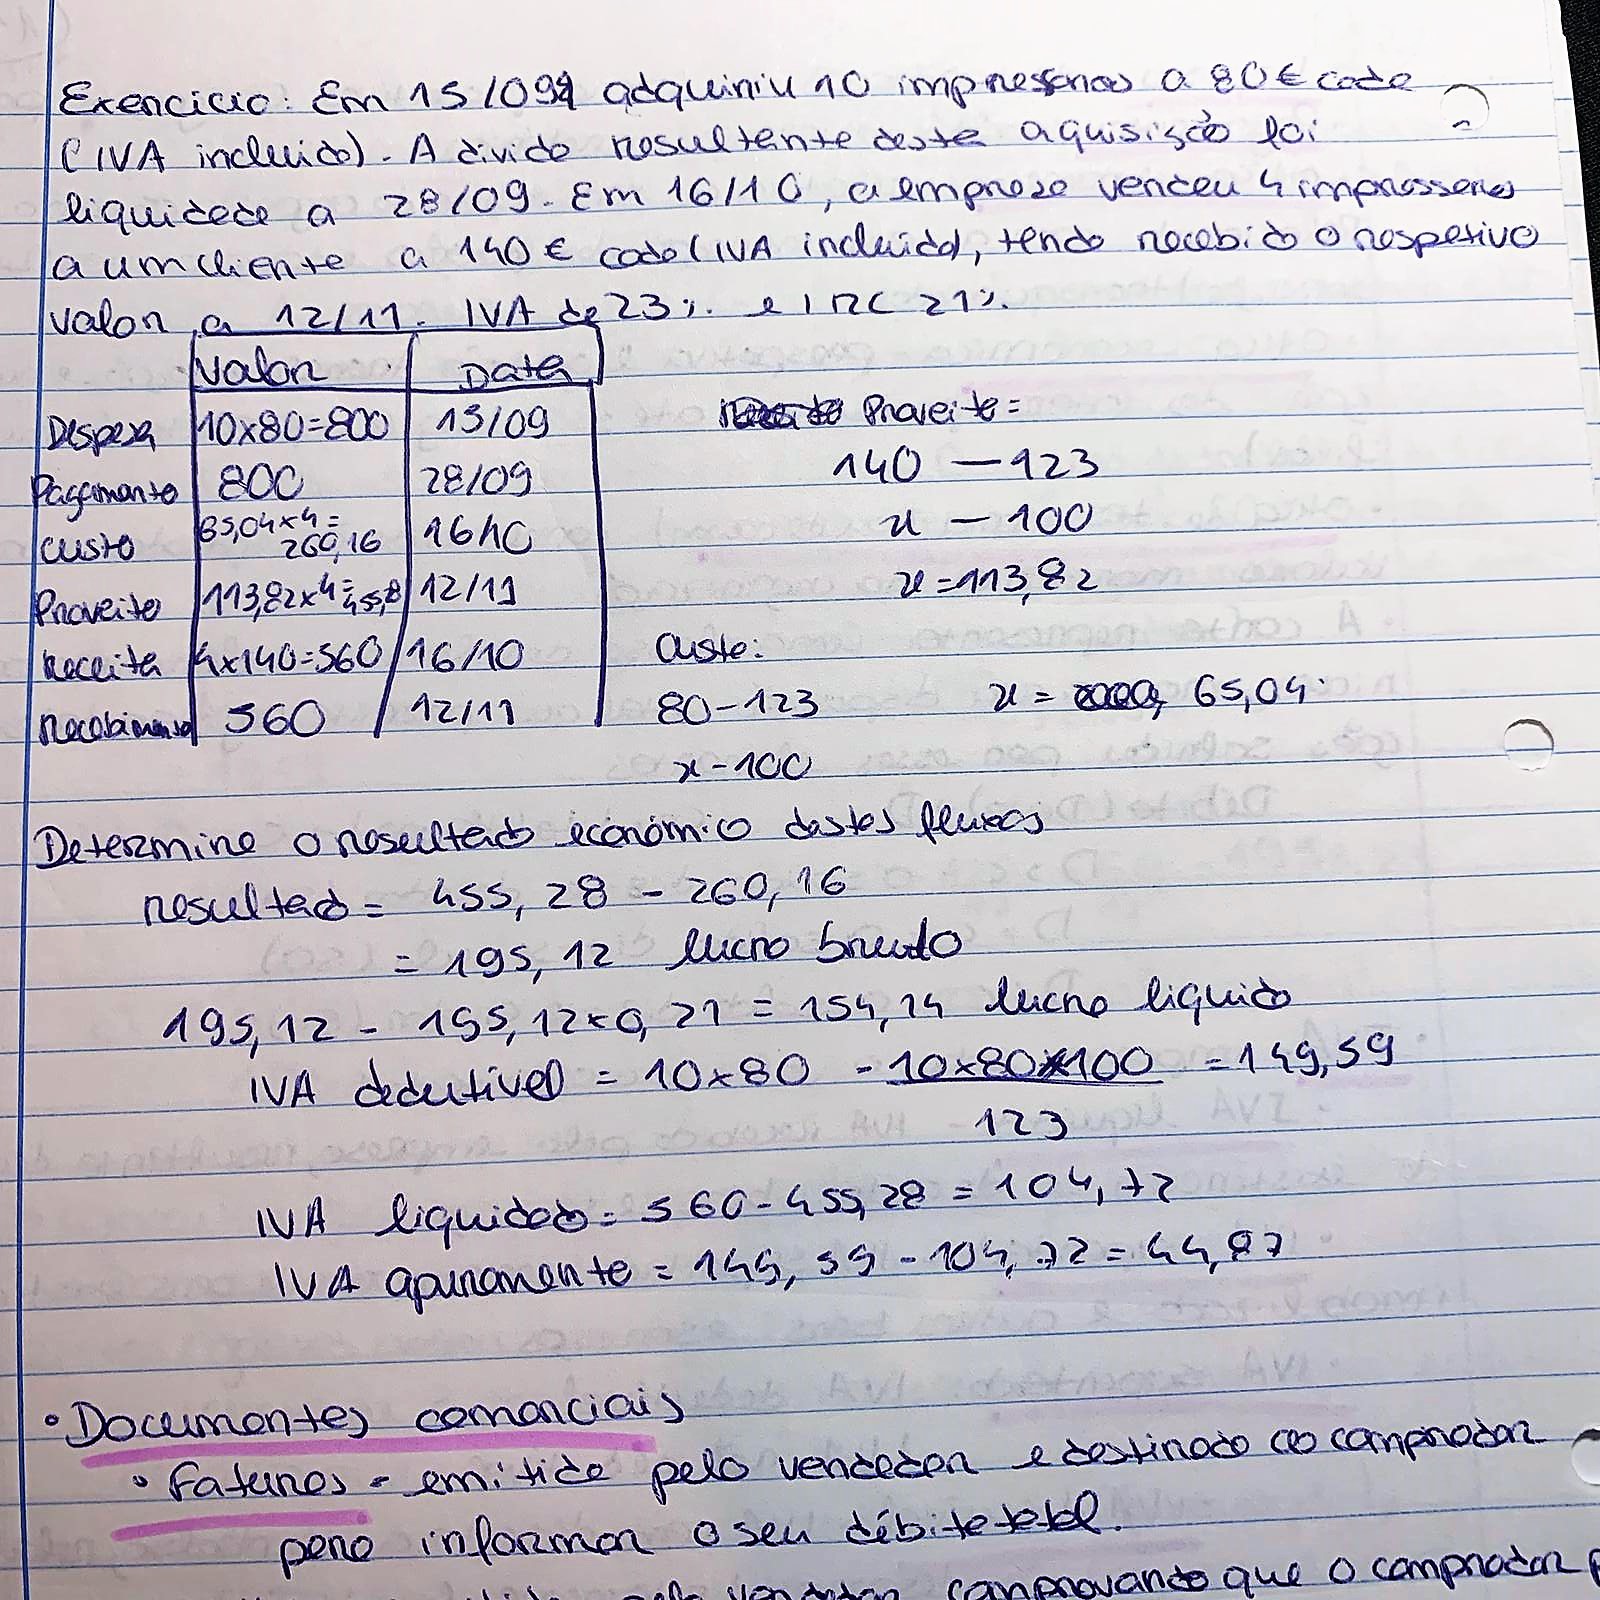 Exercício: Em 15/09 adquiriu 10 impressoras a 80€ cada
(IVA incluido). A divida resultante desta aquisição foi
liquidada a 28/09. Em 16/10, a empresa vendeu 4 impressoras
a um cliente a 140€ cada (IVA incluido), tendo recebido o respetivo
valor a 12/11. IVA de 23%. e IRC 21%.
Valor Data
Despesa 10x80=800 15/09
Pagamento 800 28/09
Custo 65,04x4=260,16 16/10
Proveito 113,82x4=455,8 12/11
Receita 4x140=560 16/10
Recebimento 560 12/11
Proveito =
140 — 123
x — 100
x = 113,82
Custo:
80 - 123 x = 65,04
x - 100
Determine o resultado económico destes fluxos
resultado = 455,28 - 260,16
= 195,12 lucro bruto
195,12 - 195,12x0,21 = 154,14 lucro liquido
IVA dedutível = 10x80 - 10x80x100 = 149,59
123
IVA liquidado = 560 - 455,28 = 104,72
IVA apuramento = 149,59 - 104,72 = 44,87
• Documentos comerciais
• Faturas - emitida pelo vendedor e destinado ao comprador
para informar o seu débito total.
pelo vendedor comprovando que o comprador p